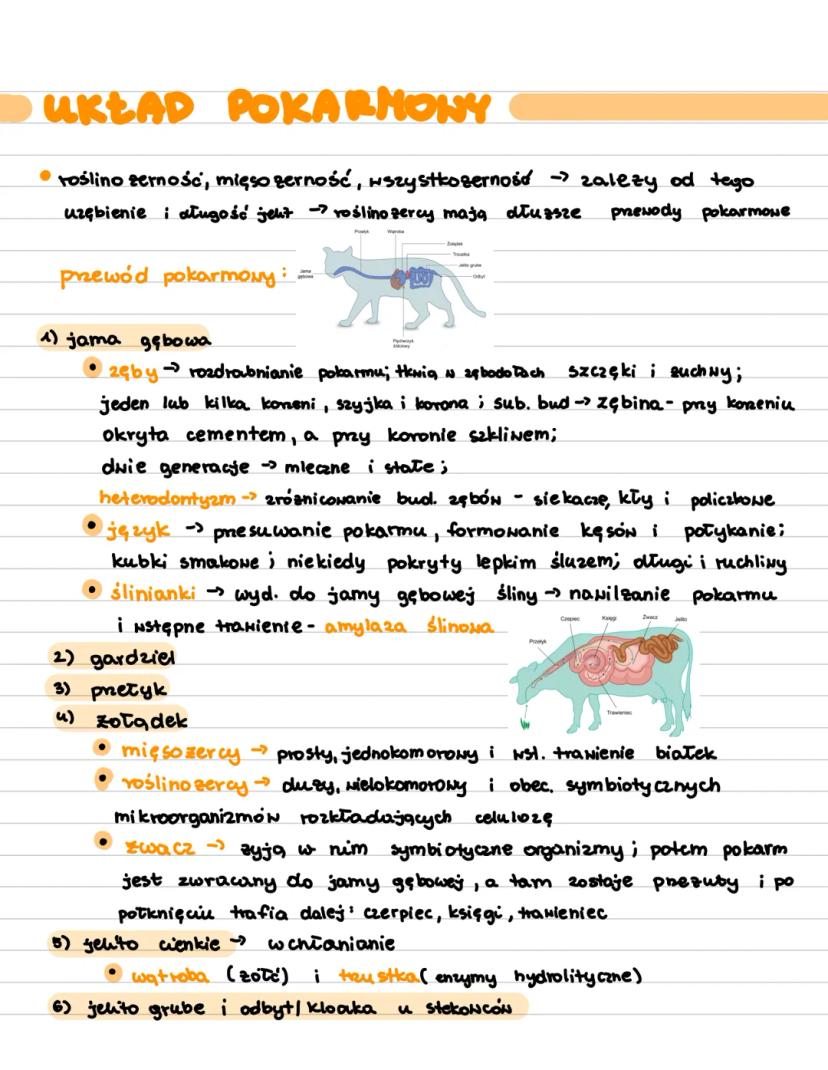 UKŁAD POKARMOWY
• roślinożerność, mięsożerność, wszystkożerność → zależy od tego
uzębienie i długość jelit → roślinożercy mają dłuższe przewody pokarmowe
Przełyk Wątroba
Żołądek
Trzustka
Jelito grube
Odbyt
Jama gębowa
Pęcherzyk żółciowy
przewód pokarmowy:
1) jama gębowa
• zęby → rozdrabnianie pokarmu; tkwią w zębodołach szczęki i żuchwy;
jeden lub kilka korzeni, szyjka i korona; sub. bud → zębina - przy korzeniu
okryta cementem, a przy koronie szkliwem;
dwie generacje → mleczne i stałe;
heterodontyzm → zróżnicowanie bud. zębów - siekacze, kły i policzkowe
• język → przesuwanie pokarmu, formowanie kęsów i połykanie;
kubki smakowe; niekiedy pokryty lepkim śluzem; długi i ruchliwy
• ślinianki → wyd. do jamy gębowej śliny → nawilżanie pokarmu
i wstępne trawienie - amylaza ślinowa
Czepiec Księgi Żwacz Jelito
Przełyk
Trawieniec
2) gardziel
3) przełyk
4) żołądek
• mięsożercy → prosty, jednokomorowy i wst. trawienie białek
• roślinożercy → duży, wielokomorowy i obec. symbiotycznych
mikroorganizmów rozkładających celulozę
• żwacz → żyją w nim symbiotyczne organizmy; potem pokarm
jest zwracany do jamy gębowej, a tam zostaje przeżuty i po
połknięciu trafia dalej: czerpiec, księgi, trawieniec
5) jelito cienkie → wchłanianie
• wątroba (żółć) i trzustka (enzymy hydrolityczne)
6) jelito grube i odbyt/kloaka u stekowców